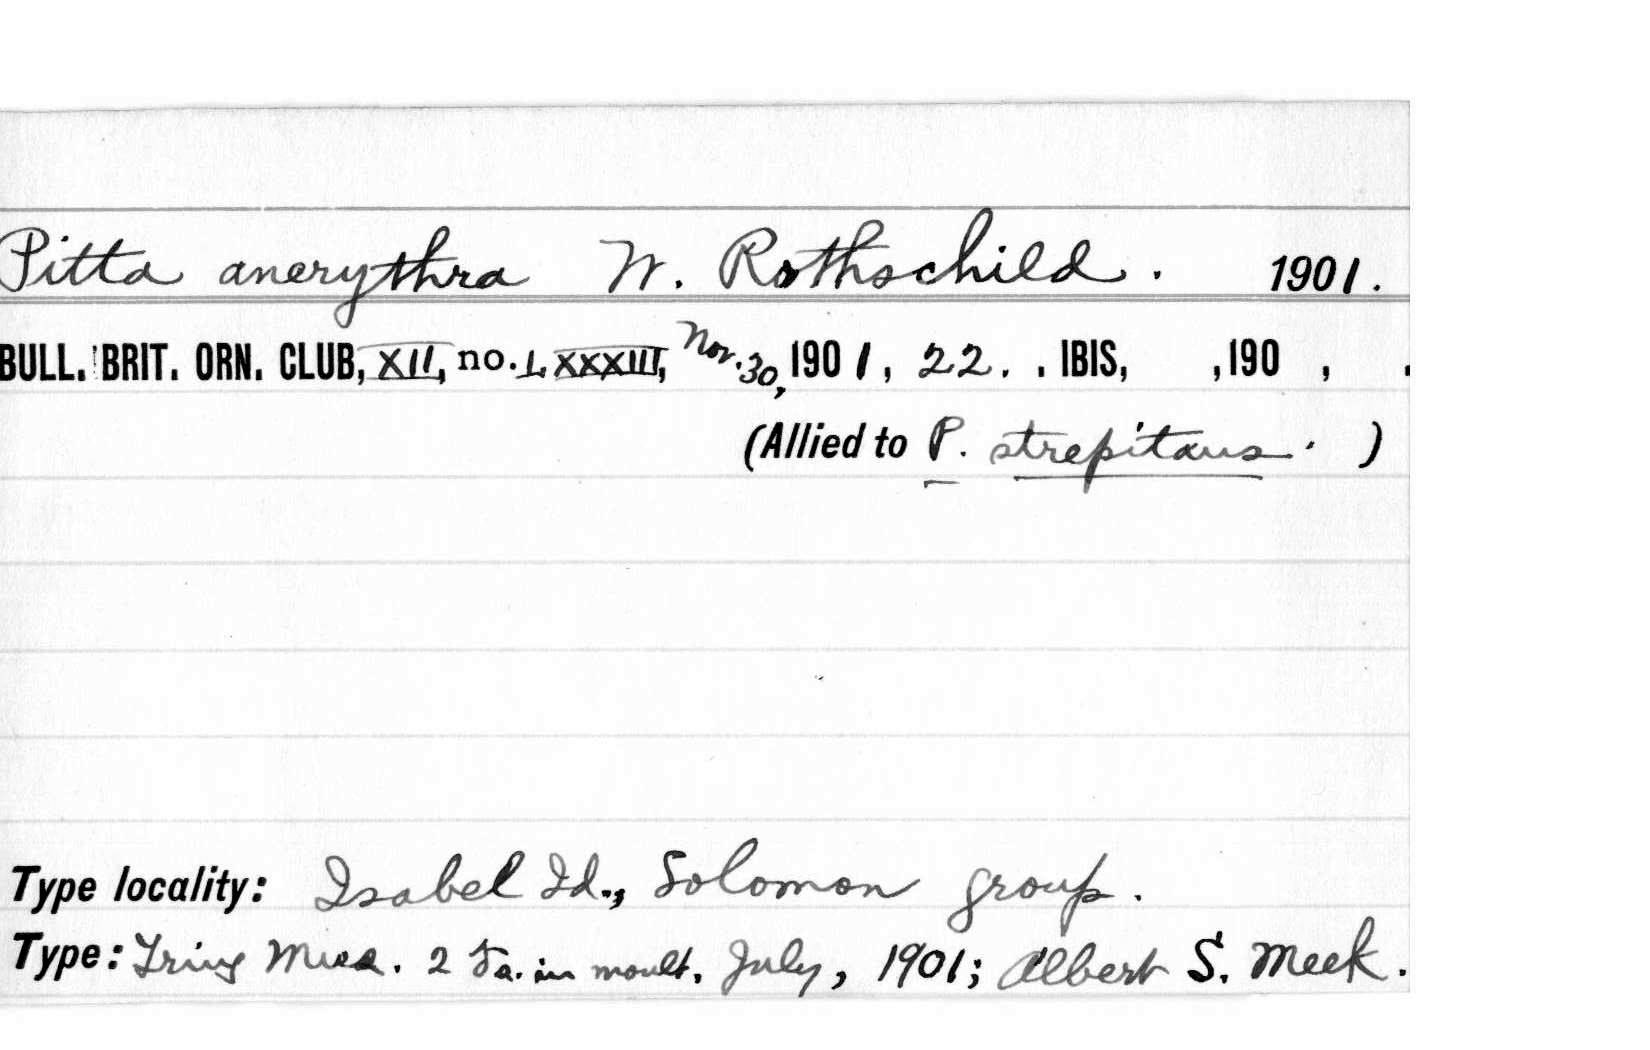 Pitta anerythra W. Rothschild. 1901.
BULL. BRIT. ORN. CLUB, XII, no. L XXXIII, Nov. 30, 1901, 22. . IBIS, , 190 , .
(Allied to P. strepitans. )
Type locality: Isabel Id., Solomon group.
Type: Tring Mus. 2 in moult, July, 1901; Albert S. Meek.